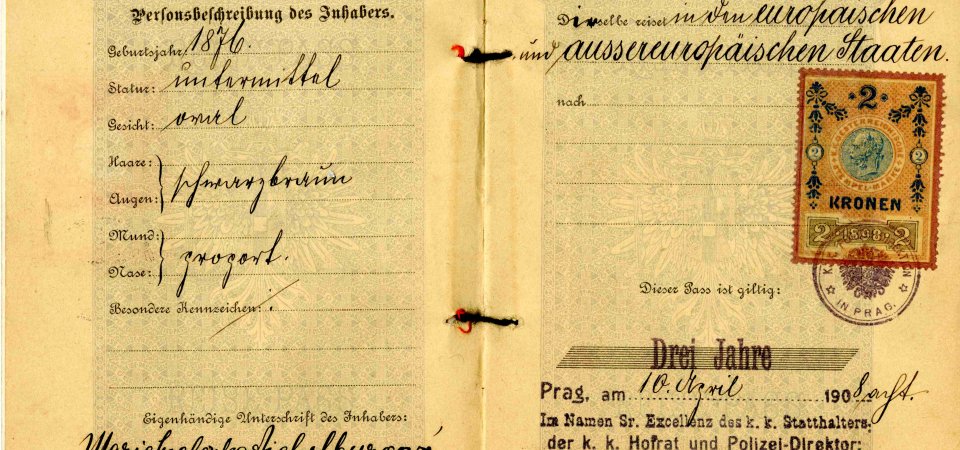 Personsbeschreibung des Inhabers.
Geburtsjahr 1876.
Statur: untermittel
Gesicht: oval
Haare:
Augen: schwarzbraun
Mund:
Nase: proport.
Besondere Kennzeichen: ∴
Eigenhändige Unterschrift des Inhabers:
Derselbe reiset in den europäischen
und aussereuropäischen Staaten.
nach
2
2 2
KRONEN
2 1898 2
IN PRAG.
Dieser Pass ist giltig:
Drei Jahre
Prag, am 10. April 1908 acht.
Im Namen Sr. Excellenz des k. k. Statthalters:
der k. k. Hofrat und Polizei-Direktor: